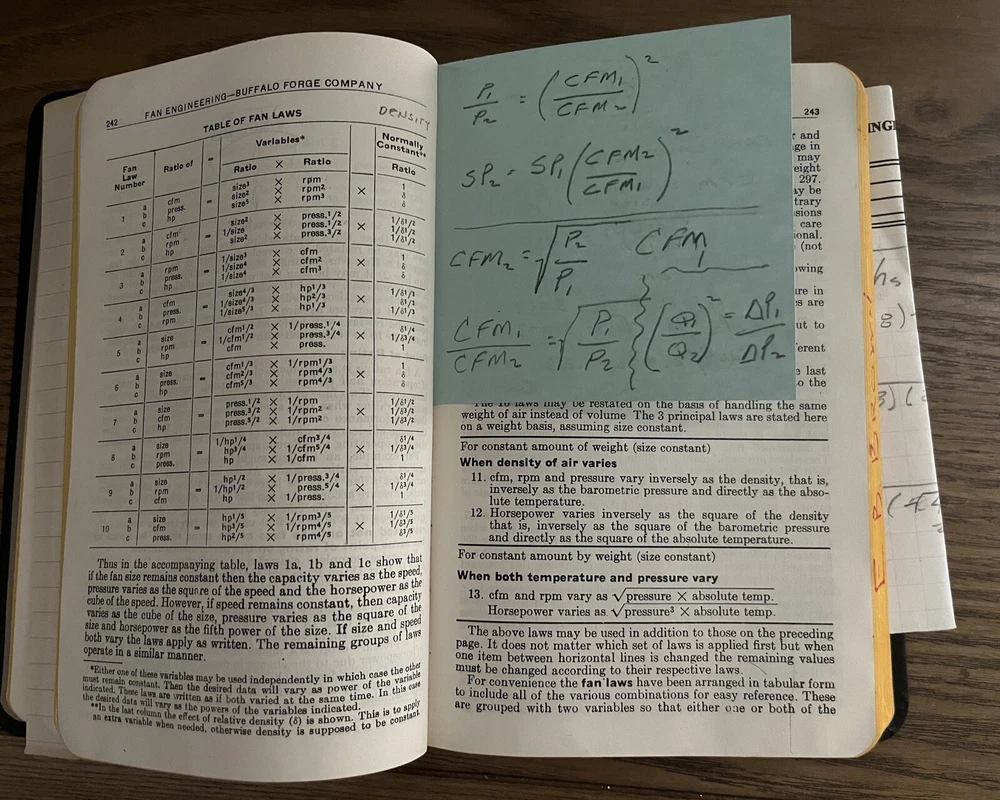 242 FAN ENGINEERING—BUFFALO FORGE COMPANY
DENSITY
TABLE OF FAN LAWS
Fan Law Number | Ratio of | = | Variables* Ratio × Ratio | Normally Constant** Ratio
1 a cfm = size³ × rpm × 1
b press. size² × rpm² δ
c hp size⁵ × rpm³ δ
2 a cfm = size² × press.1/2 × 1/δ1/2
b rpm 1/size × press.1/2 1/δ1/2
c hp size² × press.3/2 1/δ1/2
3 a rpm = 1/size³ × cfm × 1
b press. 1/size⁴ × cfm² δ
c hp 1/size⁴ × cfm³ δ
4 a cfm = size4/3 × hp1/3 × 1/δ1/3
b press. 1/size4/3 × hp2/3 δ1/3
c rpm 1/size5/3 × hp1/3 1/δ1/3
5 a size = cfm1/2 × 1/press.1/4 × δ1/4
b rpm 1/cfm1/2 × press.3/4 1/δ3/4
c hp cfm × press. 1
6 a size = cfm1/3 × 1/rpm1/3 × 1
b press. cfm2/3 × rpm4/3 δ
c hp cfm5/3 × rpm4/3 δ
7 a size = press.1/2 × 1/rpm × 1/δ1/2
b cfm press.3/2 × 1/rpm² 1/δ3/2
c hp press.5/2 × 1/rpm² 1/δ3/2
8 a size = 1/hp1/4 × cfm3/4 × δ1/4
b rpm hp3/4 × 1/cfm5/4 1/δ3/4
c press. hp × 1/cfm 1
9 a size = hp1/2 × 1/press.3/4 × δ1/4
b rpm 1/hp1/2 × press.5/4 1/δ3/4
c cfm hp × 1/press. 1
10 a size = hp1/5 × 1/rpm3/5 × 1/δ1/5
b cfm hp3/5 × 1/rpm4/5 1/δ3/5
c press. hp2/5 × rpm4/5 δ3/5
Thus in the accompanying table, laws 1a, 1b and 1c show that
if the fan size remains constant then the capacity varies as the speed,
pressure varies as the square of the speed and the horsepower as the
cube of the speed. However, if speed remains constant, then capacity
varies as the cube of the size, pressure varies as the square of the
size and horsepower as the fifth power of the size. If size and speed
both vary the laws apply as written. The remaining groups of laws
operate in a similar manner.
*Either one of these variables may be used independently in which case the other
must remain constant. Then the desired data will vary as power of the variable
indicated. These laws are written as if both varied at the same time. In this case
the desired data will vary as the powers of the variables indicated.
**In the last column the effect of relative density (δ) is shown. This is to apply
an extra variable when needed, otherwise density is supposed to be constant
P₁/P₂ = (CFM₁/CFM₂)²
SP₂ = SP₁ (CFM₂/CFM₁)²
CFM₂ = √(P₂/P₁) CFM₁
CFM₁/CFM₂ = √(P₁/P₂) (Q₁/Q₂)² = ΔP₁/ΔP₂
243
r and
ge in
may
eight
297.
ay be
trary
sions
care
ional.
(not
owing
ure in
s are
out to
ferent
e last
o the
The 10 laws may be restated on the basis of handling the same
weight of air instead of volume The 3 principal laws are stated here
on a weight basis, assuming size constant.
For constant amount of weight (size constant)
When density of air varies
11. cfm, rpm and pressure vary inversely as the density, that is,
inversely as the barometric pressure and directly as the abso-
lute temperature.
12. Horsepower varies inversely as the square of the density
that is, inversely as the square of the barometric pressure
and directly as the square of the absolute temperature.
For constant amount by weight (size constant)
When both temperature and pressure vary
13. cfm and rpm vary as √pressure × absolute temp.
Horsepower varies as √pressure³ × absolute temp.
The above laws may be used in addition to those on the preceding
page. It does not matter which set of laws is applied first but when
one item between horizontal lines is changed the remaining values
must be changed according to their respective laws.
For convenience the fan laws have been arranged in tabular form
to include all of the various combinations for easy reference. These
are grouped with two variables so that either one or both of the
ING
hs
8)
3)(